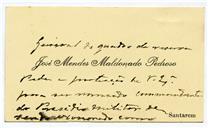 General do quadro de reserva
José Mendes Maldonado Pedroso
Pede a protecção de V. Exª.
para ser nomeado commandante
do Presidio Militar de
Santarem